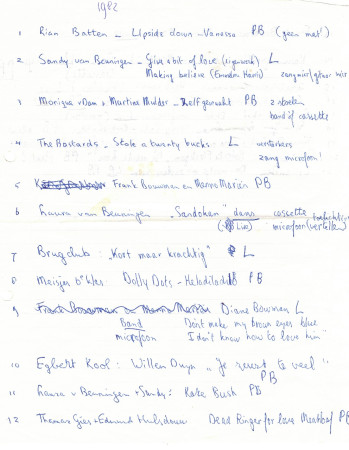 1982
1 Rian Batten - Upside down - Vanessa PB (geen mat')
2 Sandy van Beuningen - Give a bit of love (eigenwerk) L
Making believe (Emmelou Harris) zangmicr/gitaar micr
3 Monique v Dam + Martine Mulder - Zelfgemaakt PB 2 stoelen
band of cassette
4 The Bastards - Stole a twenty bucks L versterkers
zang microfoon!
5 Frank Bouwman en Hanno Marien PB
6 Laura van Beuningen "Sandokan" dans cassette
(Live) microfoon (vertellen)
7 Brugclub: "Kort maar krachtig" L
8 Meisjes b klas Dolly Dots - Heladiladi PB
9 Diane Bowman L
Band Don't make my brown eyes blue
microfoon I don't know how to love him"
10 Egbert Kool: Willem Duyn "Je eet te veel"
PB
11 Laura v Beuningen + Sandy: Kate Bush PB
12 Thomas Gies + Edmund Hulsdouw Dead Ringer for love Meatloaf PB